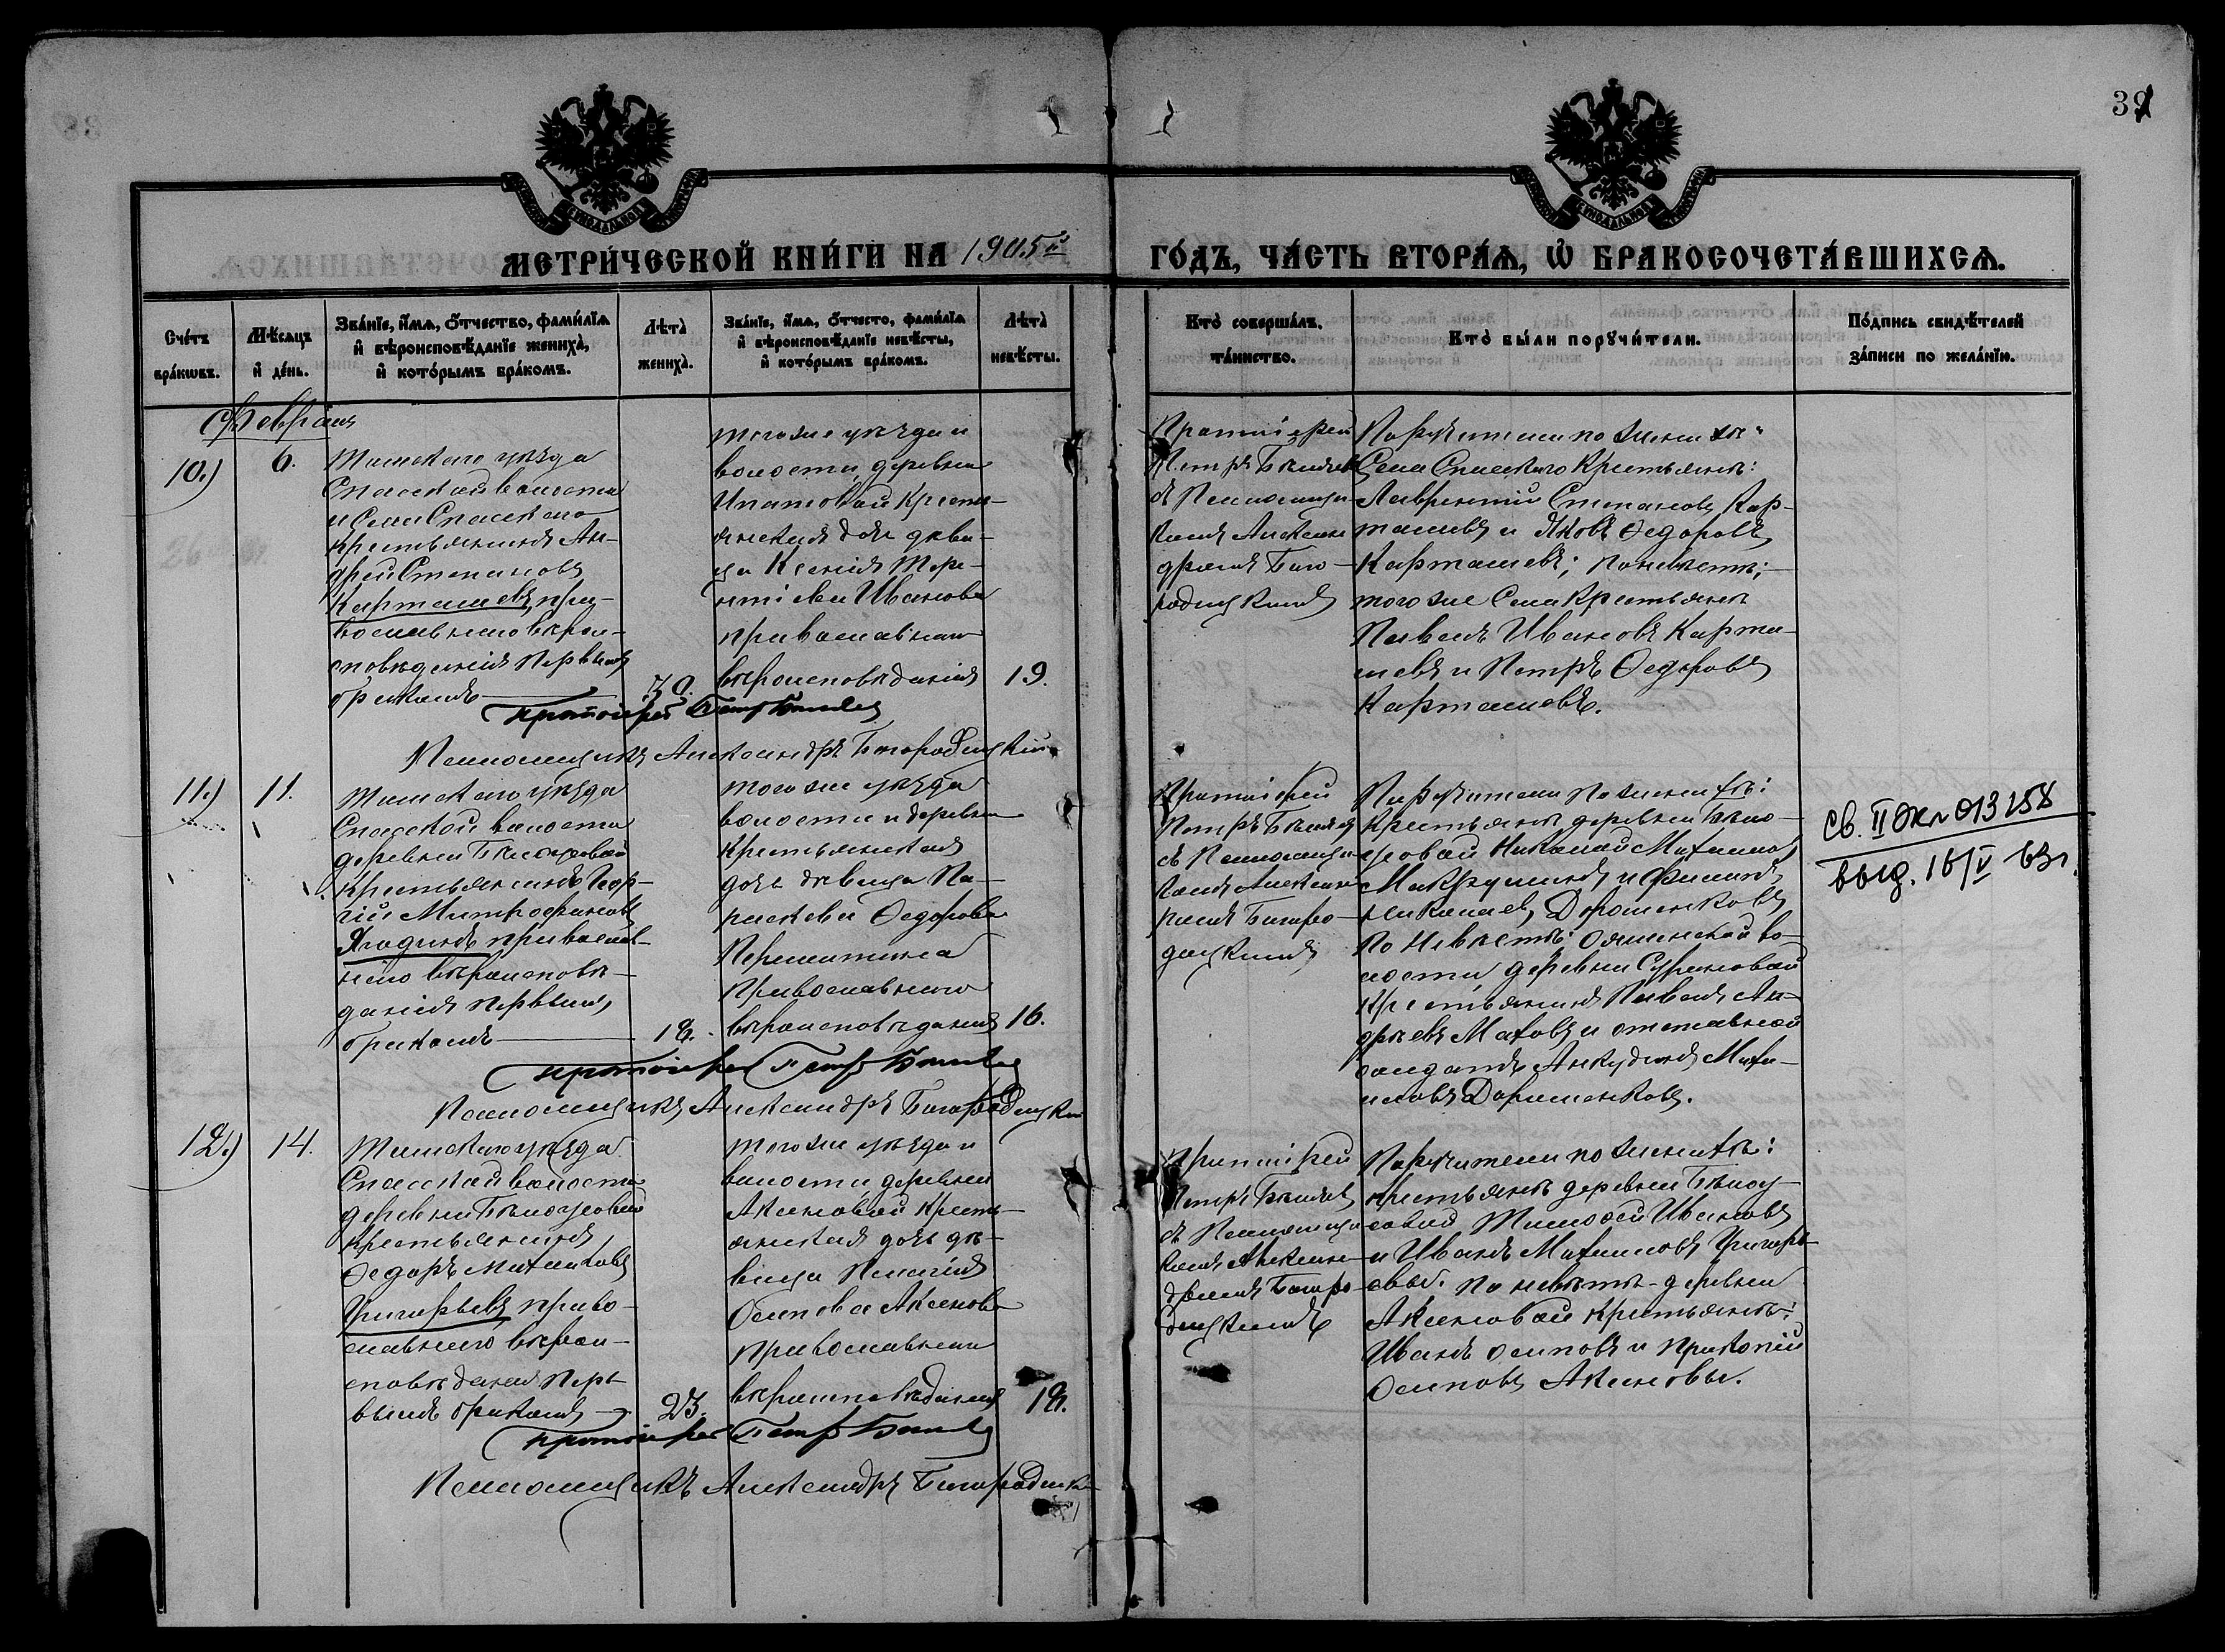 39
МЕТРИ́ЧЕСКОЙ КНИ́ГИ НА 1905й
ГО́ДЪ, ЧА́СТЬ ВТОРА́Ѧ, Ѽ БРАКОСОЧЕТА́ВШИХСѦ.
Сче́тъ
бра́кѡвъ.
Мѣ́сѧцъ
и҆ де́нь.
Зва́нїе, и҆́мѧ, ѻ҆́тчество, фами́лїѧ
и҆ вѣроисповѣ́данїе жениха̀,
и҆ кото́рымъ бра́комъ.
Лѣта̀
жениха̀.
Зва́нїе, и҆́мѧ, ѻ҆́тчесто, фами́лїѧ
и҆ вѣроисповѣ́данїе невѣ́сты,
и҆ кото́рымъ бра́комъ.
Лѣта̀
невѣ́сты.
Кто̀ соверша́лъ
та́инство.
Кто̀ бы́ли порꙋчи́тели.
По́дпись свидѣ́телей
за́писи по жела́нїю.
Февраль
10.)
6.
Томскаго уѣзда
Спасской волости
и Села Спасскаго
крестьянинъ Ан-
дрей Степановъ
Карташевъ, пра-
вославнаго вѣрои-
сповѣданія первымъ
бракомъ
30.
того же уѣзда и
волости, деревни
Ипатовой Кресть-
янская дочь дѣви-
ца Ксенія Тере-
нтіева Иванова
православнаго
вѣроисповѣданія
19.
Протоіерей
Петръ Бѣляевъ
съ Псаломщи-
комъ Алексан-
дромъ Бого-
родицкимъ
Поручители по женихѣ:
Села Спасскаго Крестьяне:
Лаврентій Степановъ Кар-
ташевъ и Яковъ Ѳедоровъ
Карташевъ; по невѣстѣ;
того же Села Крестьяне
Павелъ Ивановъ Карта-
шевъ и Петръ Ѳедоровъ
Карташевъ.
протоіерей Петръ Бѣляевъ
Псаломщикъ Александръ Богородицкій
11.)
11.
Томскаго уѣзда
Спасской волости
деревни Бѣлоусовой
крестьянинъ Геор-
гій Митрофановъ
Ягодинъ православ-
наго вѣроисповѣ-
данія первымъ
бракомъ
18.
того же уѣзда
волости и деревни
Крестьянская
дочь дѣвица Па-
раскева Ѳедорова
православнаго
вѣроисповѣданія
16.
Протоіерей
Петръ Бѣляевъ
съ Псаломщи-
комъ Александ-
ромъ Богоро-
дицкимъ
Поручители по женихѣ:
Крестьяне деревни Бѣло-
усовой Николай Михаиловъ
и Филиппъ
Николаевъ Дорошенковъ
По невѣстѣ: Ояшинской во-
лости деревни Сурановой
Крестьянинъ Павелъ Ан-
дреевъ Маховъ и отставной
солдатъ Анкудинъ Миха-
иловъ Дорошенковъ.
Св. II Экл 013258
выд. 16/V 63г.
протоіерей Петръ Бѣляевъ
Псаломщикъ Александръ Богородицкій
12.)
14.
Томскаго уѣзда
Спасской волости
деревни Бѣлоусовой
крестьянинъ
Ѳедоръ Михаиловъ
Григорьевъ право-
славнаго вѣрои-
сповѣданія пер-
вымъ бракомъ
23.
того же уѣзда и
волости деревни
Аксеновой Кресть-
янская дочь дѣ-
вица Пелагія
Осипова Аксенова
православнаго
вѣроисповѣданія
18.
Протоіерей
Петръ Бѣляевъ
съ Псаломщи-
комъ Алексан-
дромъ Богоро-
дицкимъ
Поручители по женихѣ:
крестьяне деревни Бѣлоу-
совой Тимоѳей Ивановъ
и Иванъ Михаиловъ Григорь-
евы. По невѣстѣ - деревни
Аксеновой Крестьяне:
Иванъ Осиповъ и Прокопій
Осиповъ Аксеновы.
протоіерей Петръ Бѣляевъ
Псаломщикъ Александръ Богородицкій